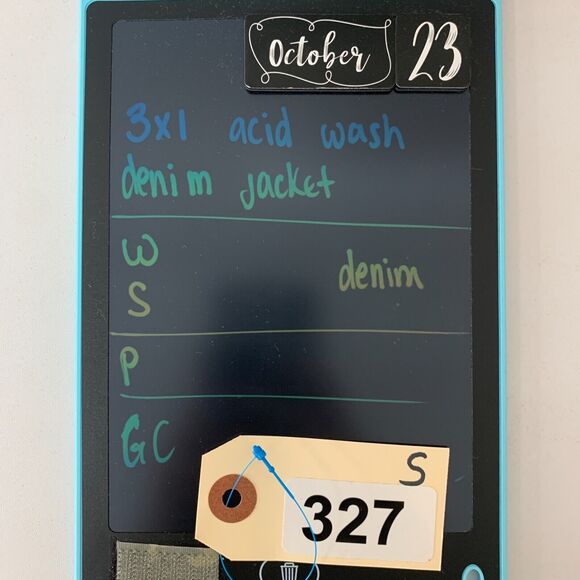 October 23
3x1 acid wash
denim jacket
W
denim
S
P
GC
S
327